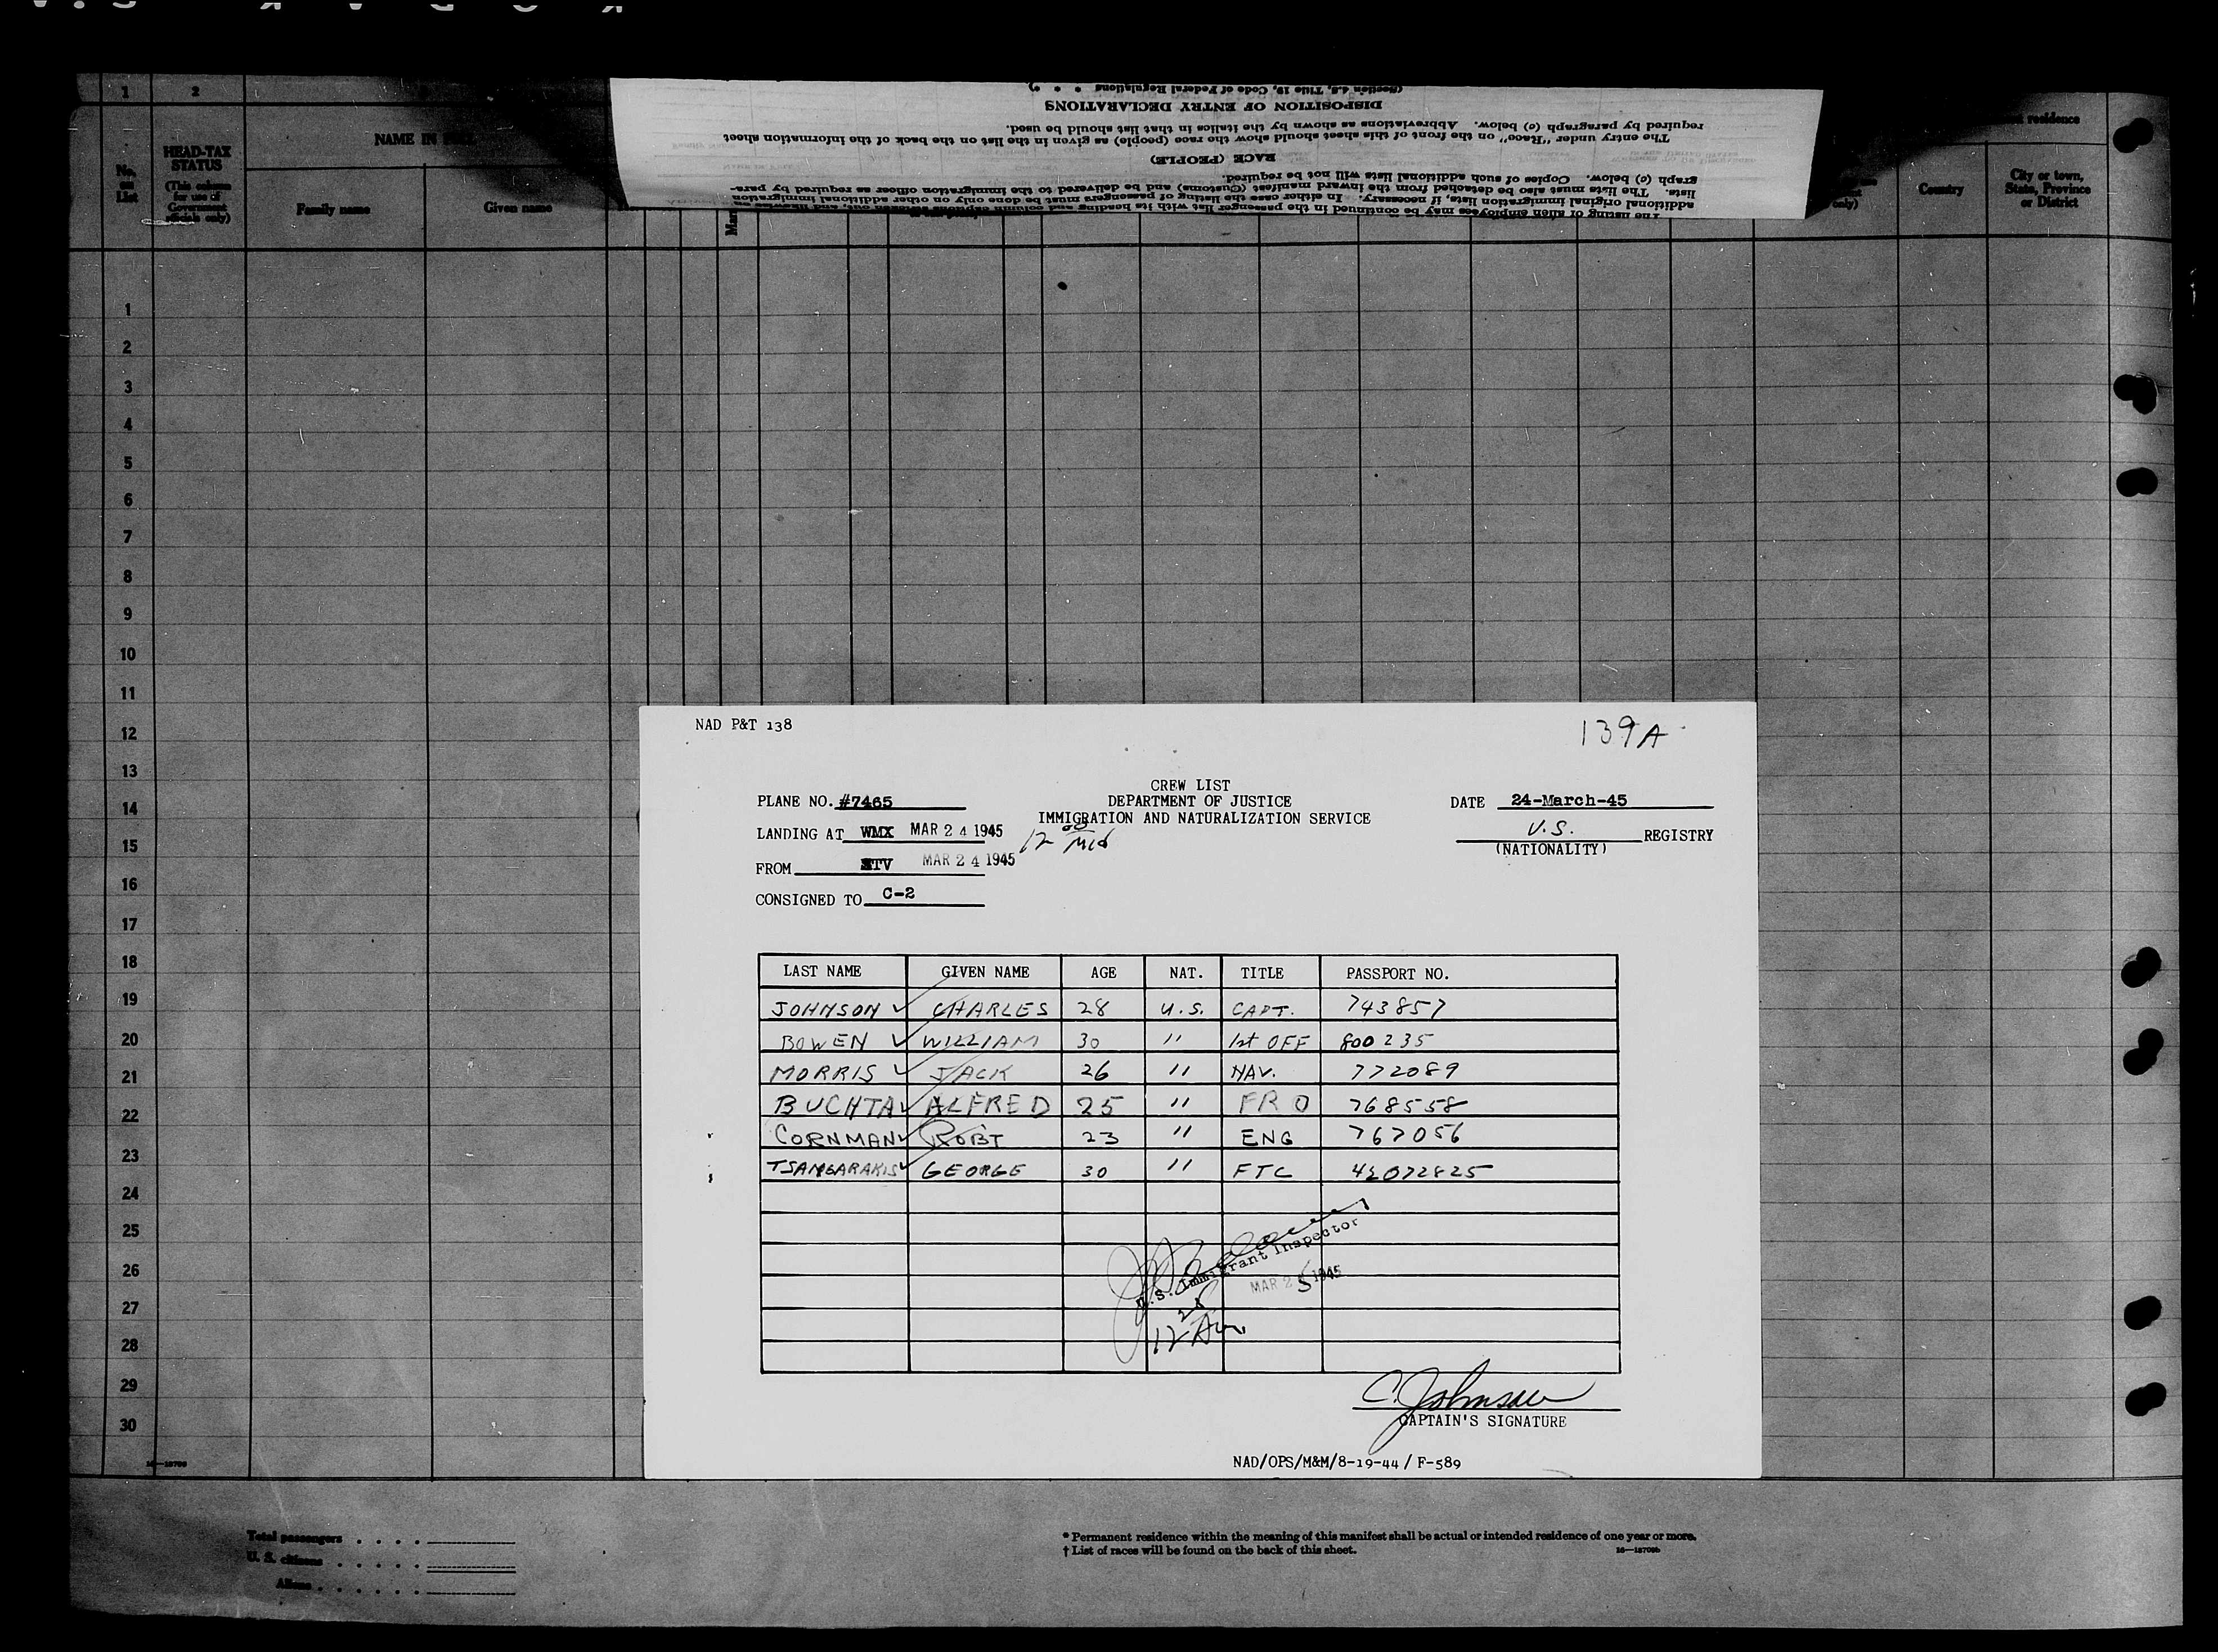 1 2
NAME IN FULL
HEAD-TAX STATUS
(This column for use of Government officials only)
No. on List
Family name Given name
(Section 4.5, Title 19, Code of Federal Regulations * * *)
DISPOSITION OF ENTRY DECLARATIONS
required by paragraph (e) below. Abbreviations as shown by the italics in that list should be used.
The entry under "Race" on the front of this sheet should show the race (people) as given in the list on the back of the information sheet
RACE (PEOPLE)
graph (c) below. Copies of such additional lists will not be required.
lists. The lists must also be detached from the inward manifest (Customs) and be delivered to the immigration officer as required by para-
additional original immigration lists, if necessary. In either case the listing of passengers must be done only on other additional immigration
residence
only)
Country
City or town, State, Province or District
1
2
3
4
5
6
7
8
9
10
11
12
13
14
15
16
17
18
19
20
21
22
23
24
25
26
27
28
29
30
NAD P&T 138
139A
CREW LIST
PLANE NO. #7465 DEPARTMENT OF JUSTICE DATE 24-March-45
IMMIGRATION AND NATURALIZATION SERVICE
LANDING AT WMX MAR 24 1945 12 00 Mid U.S. REGISTRY
(NATIONALITY)
FROM STV MAR 24 1945
CONSIGNED TO C-2
LAST NAME GIVEN NAME AGE NAT. TITLE PASSPORT NO.
JOHNSON ✓ CHARLES 28 U.S. CAPT. 743857
BOWEN ✓ WILLIAM 30 " 1st OFF 800235
MORRIS ✓ JACK 26 " NAV. 772089
BUCHTA ✓ ALFRED 25 " FRO 768558
CORNMAN ✓ ROBT 23 " ENG 767056
TSANGARAKIS ✓ GEORGE 30 " FTC 42072825
U.S. Immigrant Inspector
MAR 25 1945
12 Am
C. Johnson
CAPTAIN'S SIGNATURE
NAD/OPS/M&M/8-19-44 / F-589
Total passengers
U. S. citizens
Aliens
* Permanent residence within the meaning of this manifest shall be actual or intended residence of one year or more.
† List of races will be found on the back of this sheet.